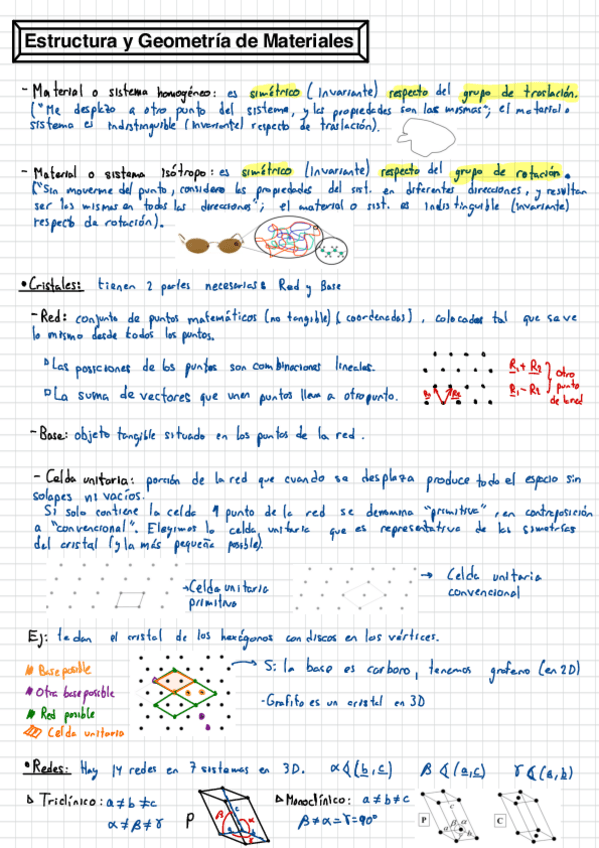 Estructura y Geometría de Materiales
- Material o sistema homogéneo: es simétrico (invariante) respecto del grupo de traslación.
("Me desplazo a otro punto del sistema, y las propiedades son las mismas"; el material o
sistema es indistinguible (invariante) respecto de traslación).
- Material o sistema Isótropo: es simétrico (invariante) respecto del grupo de rotación.
("Sin moverme del punto, considero las propiedades del sist. en diferentes direcciones, y resultan
ser las mismas en todas las direcciones"; el material o sist. es indistinguible (invariante)
respecto de rotación).
• Cristales: tienen 2 partes necesarias: Red y Base
- Red: conjunto de puntos matemáticos (no tangible) (coordenadas), colocados tal que se ve
lo mismo desde todos los puntos.
Las posiciones de los puntos son combinaciones lineales.
La suma de vectores que unen puntos lleva a otro punto.
R1 R2
R1 + R2
R1 - R2
otro
punto
de la red
- Base: objeto tangible situado en los puntos de la red.
- Celda unitaria: porción de la red que cuando se desplaza produce todo el espacio sin
solapes ni vacíos.
Si solo contiene la celda 1 punto de la red se denomina "primitiva", en contraposición
a "convencional". Elegimos la celda unitaria que es representativa de las simetrías
del cristal (y la más pequeña posible).
→ Celda unitaria
primitiva
→ Celda unitaria
convencional
Ej: te dan el cristal de los hexágonos con discos en los vértices.
Base posible
Otra base posible
Red posible
Celda unitaria
Si la base es carbono, tenemos grafeno (en 2D)
- Grafito es un cristal en 3D
• Redes: Hay 14 redes en 7 sistemas en 3D. α∢(b,c) β∢(a,c) γ∢(a,b)
▷ Triclínico: a≠b≠c
α≠β≠γ
P
▷ Monoclínico: a≠b≠c
β≠α=γ=90°
P
C